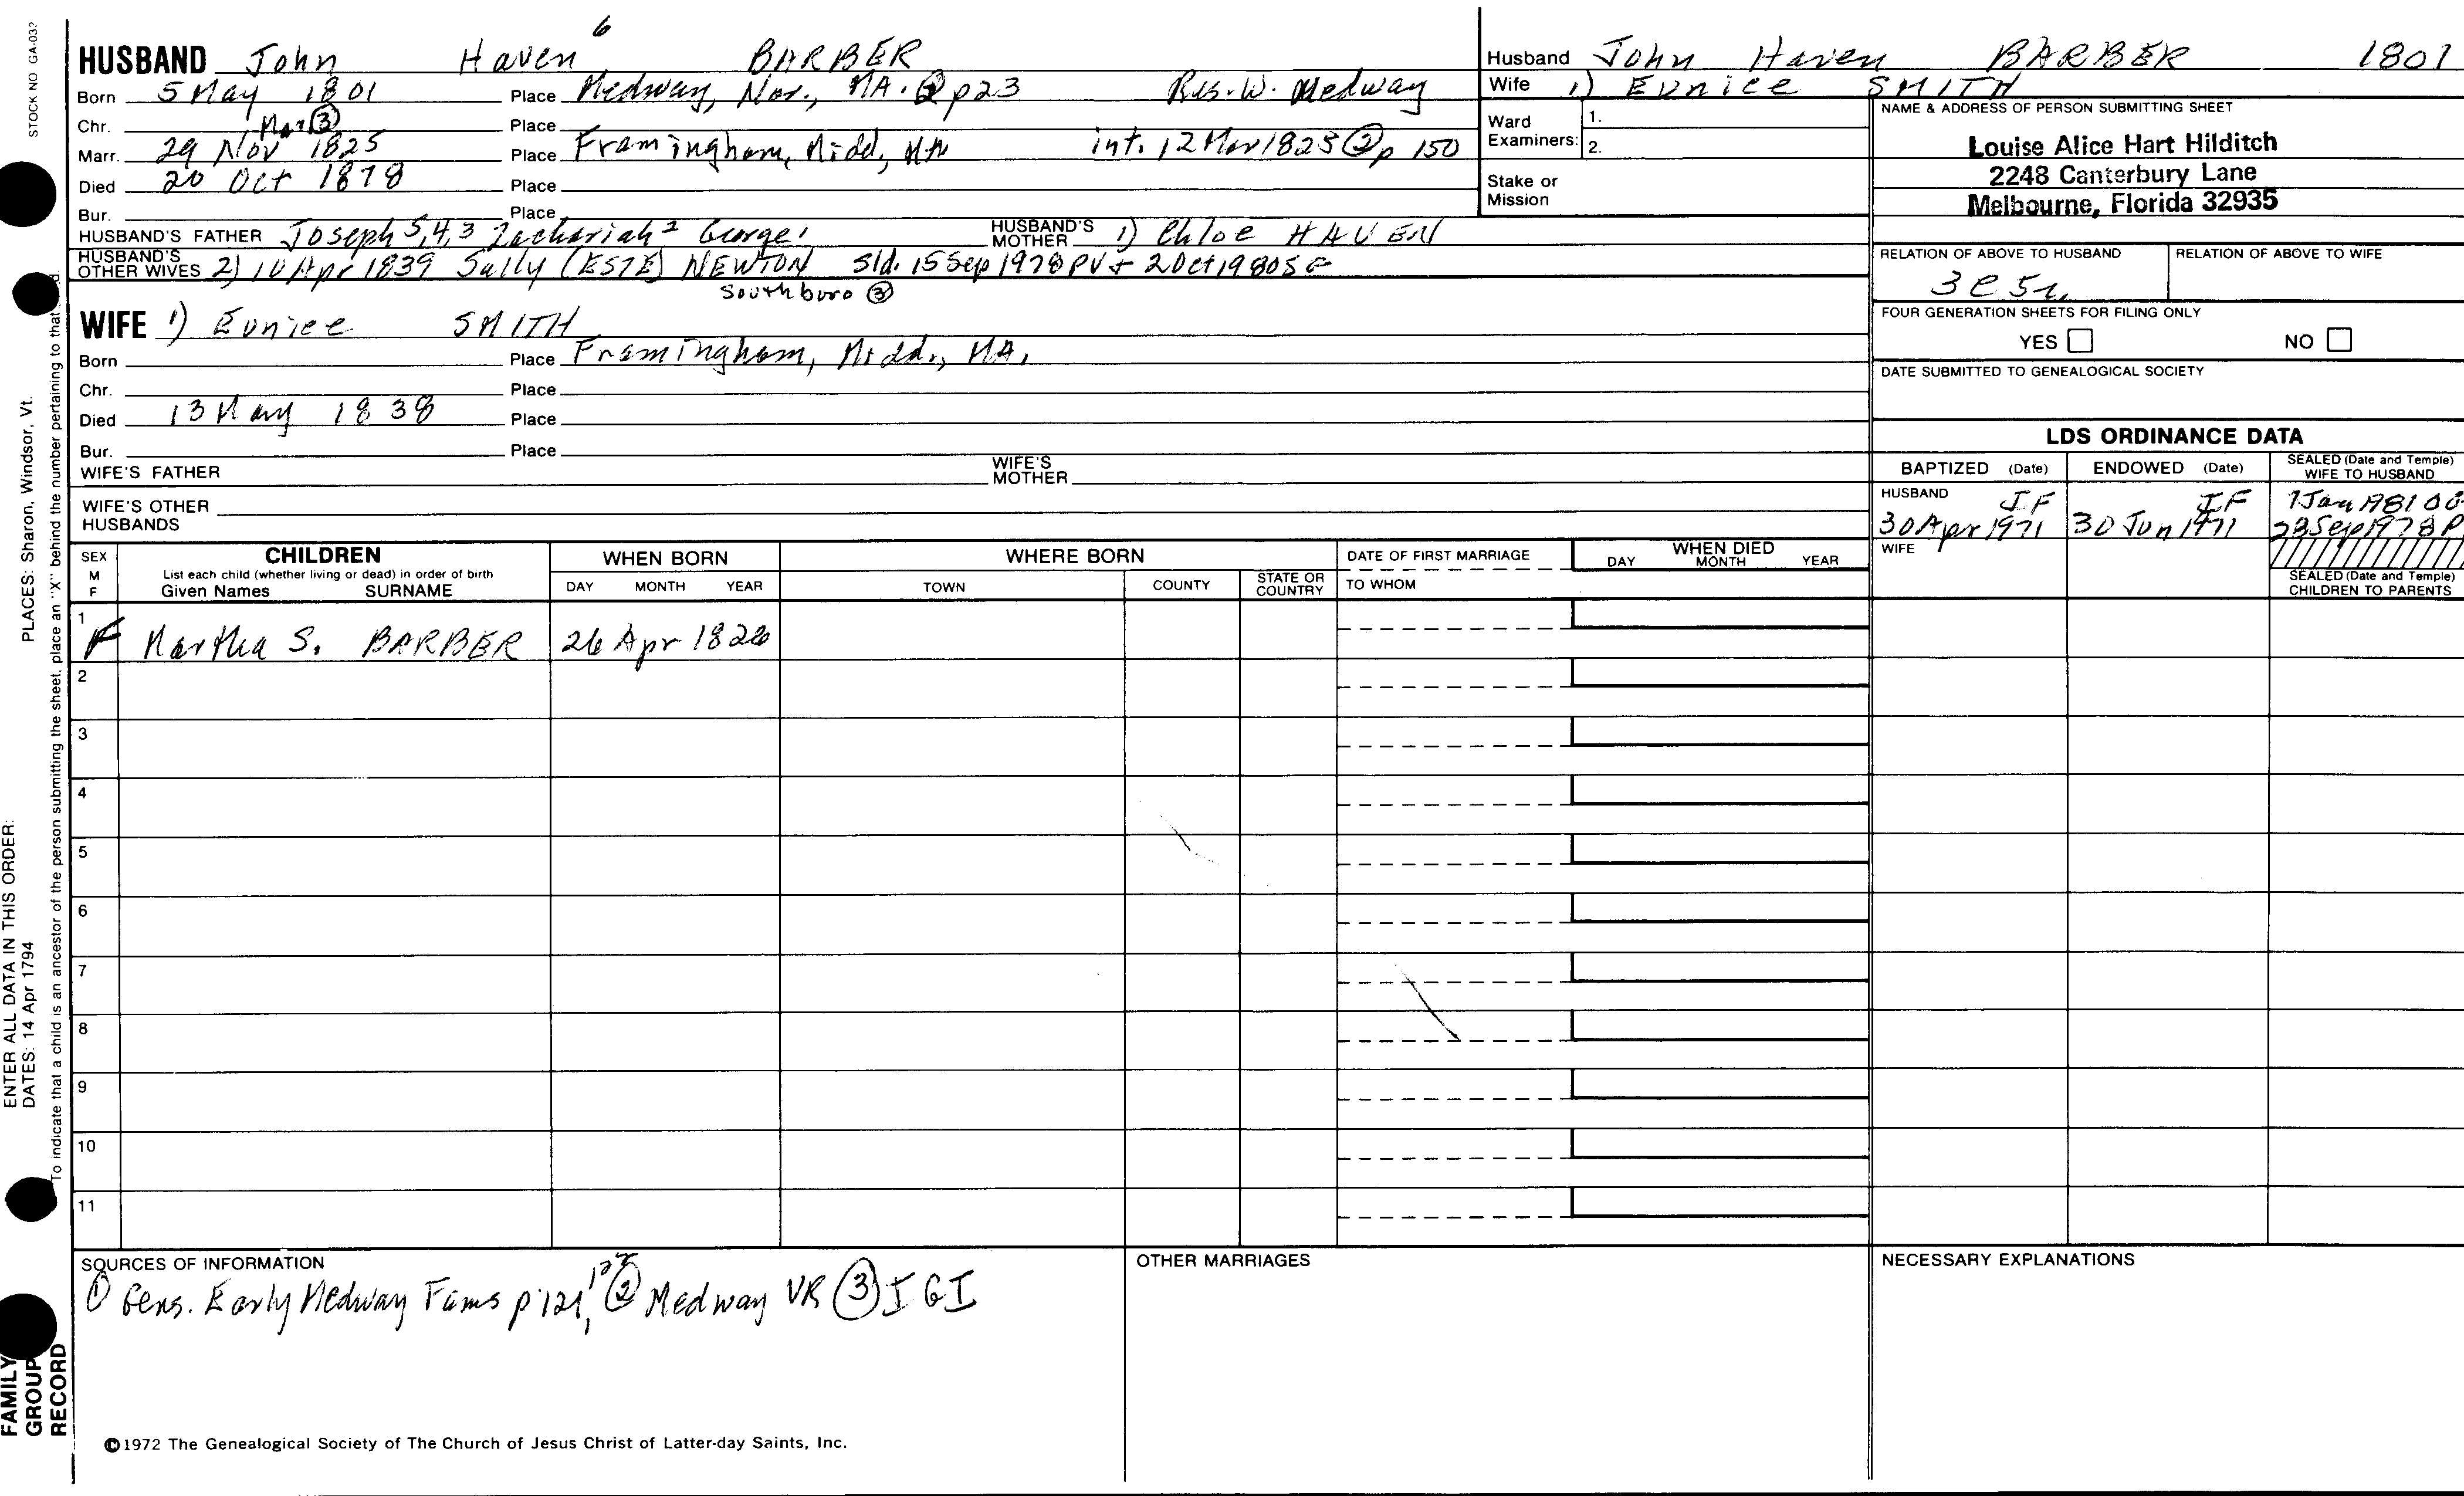 STOCK NO GA-032
6
HUSBAND John Haven BARBER
Born 5 May 1801 Place Medway, Nor., MA. ② p23 Res. W. Medway
Chr. Place
Mar ③
Marr. 29 Nov 1825 Place Framingham, Midd, MA int. 12 Mar 1825 ② p 150
Died 20 Oct 1878 Place
Bur. Place
HUSBAND'S FATHER Joseph 5,4,3 Zachariah 2 George 1 HUSBAND'S MOTHER 1) Chloe HAVEN
HUSBAND'S OTHER WIVES 2) 10 Apr 1839 Sally (ESTE) NEWTON Sld. 15 Sep 1978 PV + 2 Oct 1980 SG
Southboro ③
WIFE 1) Eunice SMITH
Born Place Framingham, Midd., MA.
Chr. Place
Died 13 May 1838 Place
Bur. Place
WIFE'S FATHER WIFE'S MOTHER
WIFE'S OTHER HUSBANDS
Husband John Haven BARBER 1801
Wife 1) Eunice SMITH
Ward Examiners: 1.
2.
Stake or Mission
NAME & ADDRESS OF PERSON SUBMITTING SHEET
Louise Alice Hart Hilditch
2248 Canterbury Lane
Melbourne, Florida 32935
RELATION OF ABOVE TO HUSBAND RELATION OF ABOVE TO WIFE
3C 5r
FOUR GENERATION SHEETS FOR FILING ONLY
YES NO
DATE SUBMITTED TO GENEALOGICAL SOCIETY
LDS ORDINANCE DATA
BAPTIZED (Date) ENDOWED (Date) SEALED (Date and Temple) WIFE TO HUSBAND
HUSBAND IF IF
30 Apr 1971 30 Jun 1971 23 Sep 1978 P
WIFE
SEALED (Date and Temple) CHILDREN TO PARENTS
SEX M F CHILDREN WHEN BORN WHERE BORN DATE OF FIRST MARRIAGE WHEN DIED
List each child (whether living or dead) in order of birth
Given Names SURNAME DAY MONTH YEAR TOWN COUNTY STATE OR COUNTRY TO WHOM DAY MONTH YEAR
1
F Martha S. BARBER 26 Apr 1826
2
3
4
5
6
7
8
9
10
11
SOURCES OF INFORMATION
① Gens. Early Medway Fams p 121, 122 ② Medway VR ③ IGI
OTHER MARRIAGES
NECESSARY EXPLANATIONS
©1972 The Genealogical Society of The Church of Jesus Christ of Latter-day Saints, Inc.
ENTER ALL DATA IN THIS ORDER:
DATES: 14 Apr 1794 PLACES: Sharon, Windsor, Vt.
To indicate that a child is an ancestor of the person submitting the sheet, place an "X" behind the number pertaining to that
FAMILY
GROUP
RECORD